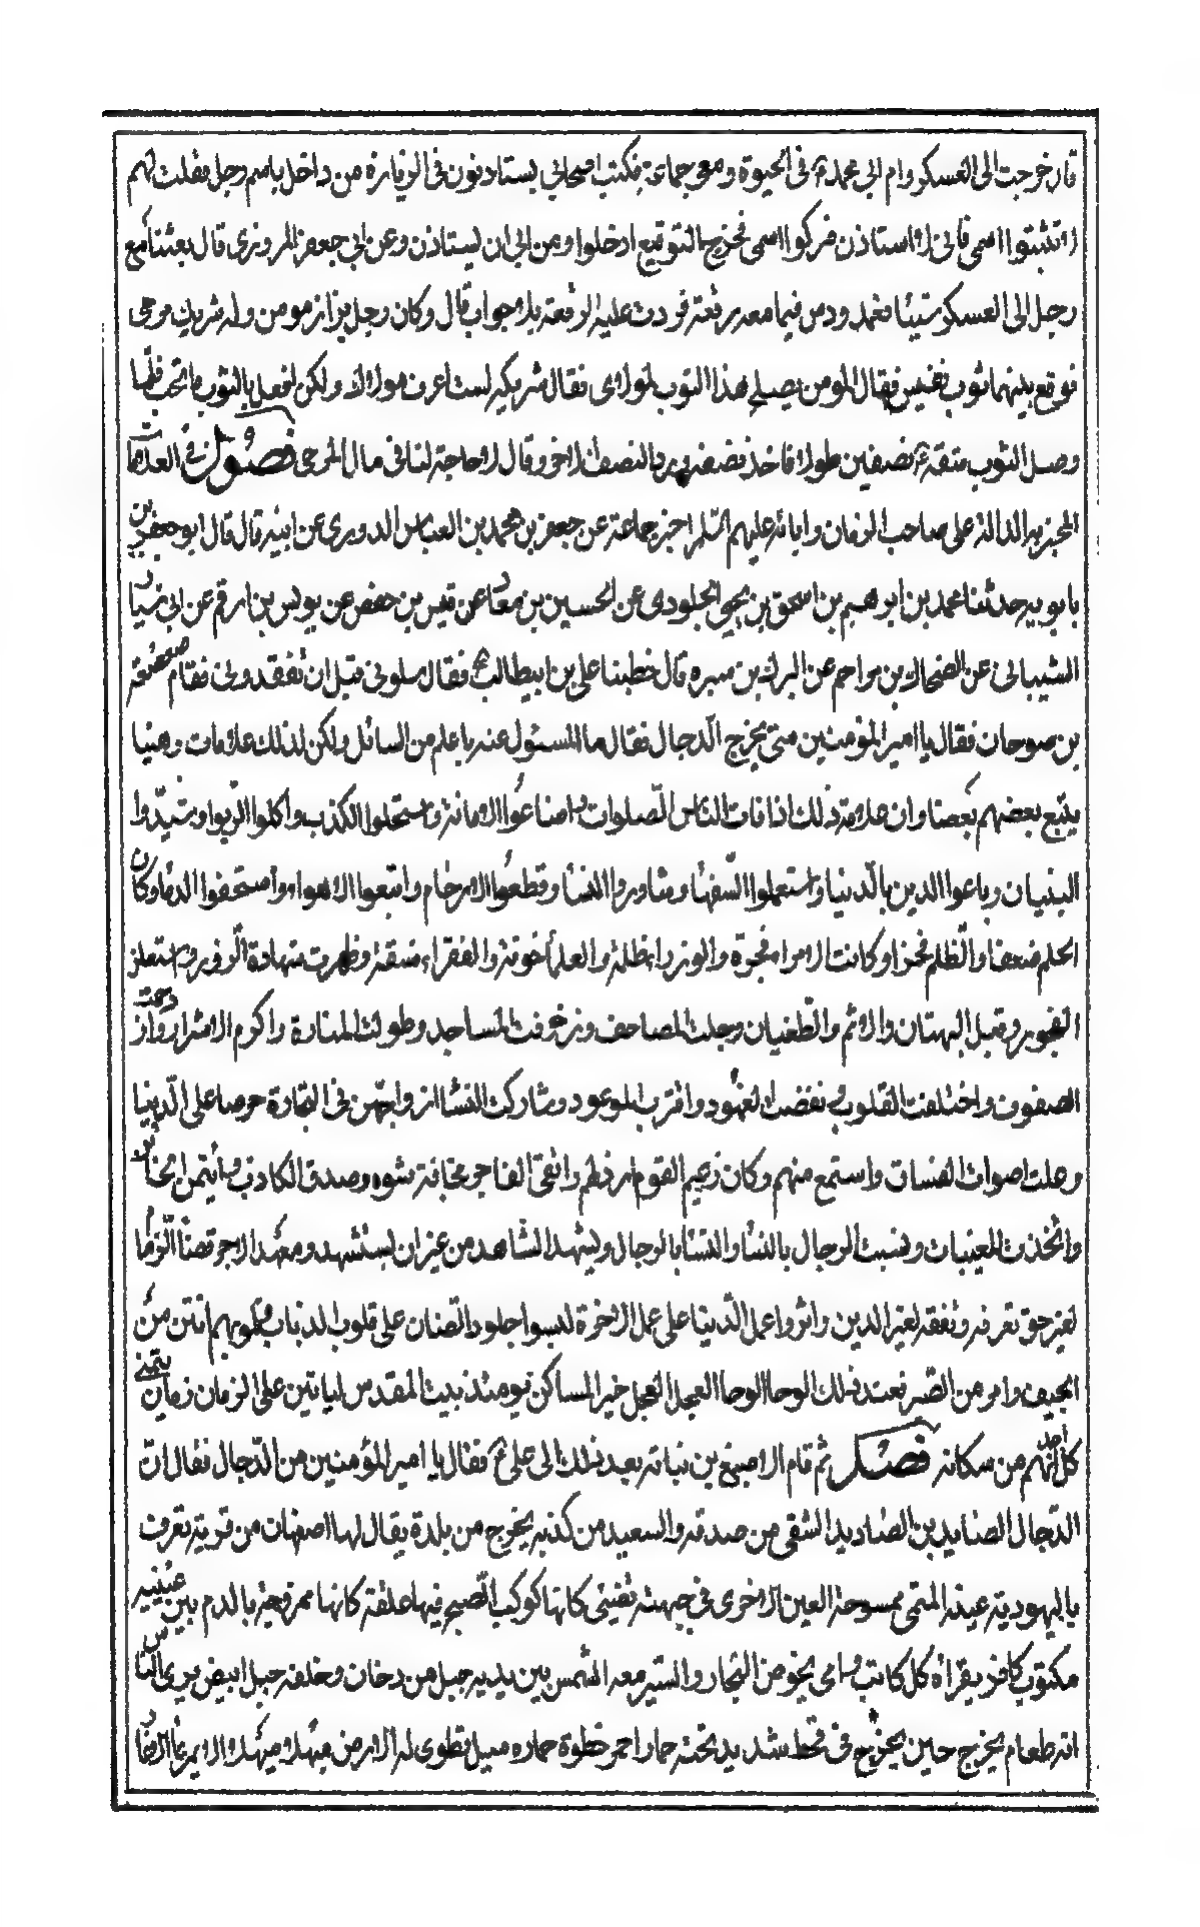 قال خرجت الى العسكر وام ابي محمد ع في الحيوة ومعي جماعة فكتب اصحابي يستاذنون في الزيارة من داخل باسم رجل فقلت لهم
لا تثبتوا اسمي فاني لا استاذن فتركوا اسمي فخرج التوقيع ادخلوا ومن ابي ان يستاذن وعن ابي جعفر المروزي قال بعثنا مع
رجل الى العسكر شيئا فعمد ودس فيما معه رقعة فردت عليه الرقعة بلا جواب قال وكان رجل بزاز مومن وله شريك مرجى
فوقع بينهما ثوب نفيس فقال المومن يصلح هذا الثوب لمولاي فقال شريكه لست اعرف مولاك ولكن افعل بالثوب ما تحب فلما
وصل الثوب شقه ع نصفين طولا فاخذ نصفه ورد النصف الاخر وقال لا حاجة لنا في مال المرجى فصول في العلامات
الحزينة الدالة على صاحب الزمان وابائه عليهم السلم اخبر جماعة عن جعفر بن محمد بن العباس الدوري عن ابيه قال قال ابو جعفر بن
بابويه حدثنا محمد بن ابرهيم بن اسحق بن يحيى الجلودي عن الحسين بن معاد عن قيس بن حفص عن يونس بن ارقم عن ابي سيار
الشيباني عن الضحاك بن مزاحم عن النزال بن سبره قال خطبنا علي بن ابيطالب ع فقال سلوني قبل ان تفقدوني فقام صعصعة
بن صوحان فقال يا امير المؤمنين متى يخرج الدجال فقال ما المسئول عنه باعلم من السائل ولكن لذلك علامات وهنيا
يتبع بعضهم بعضا وان علامة ذلك اذا فات الناس الصلوات واضاعوا الامانة واستحلوا الكذب واكلوا الربوا وشيدوا
البنيان وباعوا الدين بالدنيا واستعملوا السفهاء وشاوروا النساء وقطعوا الارحام واتبعوا الاهواء واستخفوا الدماء وكان
الحلم ضعفا والظلم فخرا وكانت الامراء فجرة والوزراء ظلمة والعلماء خونة والفقراء فسقة وظهرت شهادة الزور واستعلن
الفجور وقيل البهتان والاثم والطغيان وحليت المصاحف وزخرفت المساجد وطولت المنارة واكرم الاشرار وازدحمت
الصفوف واختلفت القلوب ونقضت العهود واقترب الموعود وشاركت النساء ازواجهن في التجارة حرصا على الدنيا
وعلت اصوات الفساق واستمع منهم وكان زعيم القوم ارذلهم واتقى الفاجر مخافة شره وصدق الكاذب وائتمن الخائن
واتخذت المغنيات وتشبت الرجال بالنساء والنساء بالرجال ويشهد الشاهد من غير ان يستشهد وشهد الاخر قضاء الذمام
لغير حق تعرفه وتفقه لغير الدين واثروا عمل الدنيا على عمل الاخرة لبسوا جلود الضان على قلوب الذئاب قلوبهم انتن من
الجيف وامر من الصبر فعند ذلك الوحا الوحا العجل العجل خير المساكن يومئذ بيت المقدس لياتين على الزمان زمان يتمنى
كل احد انهم من سكانه فصل ثم قام الاصبغ بن نباته بعد ذلك الى علي ع فقال يا امير المؤمنين من الدجال فقال ان
الدجال الصايد بن الصايد الشقي من صدقه والسعيد من كذبه يخرج من بلدة يقال لها اصفهان من قرية تعرف
باليهودية عينه اليمنى ممسوحة العين الاخرى في جبهته تضيء كانها كوكب الصبح فيها علقة كانها ممزوجة بالدم بين عينيه
مكتوب كافر يقراه كل كاتب وامي يخوض البحار والسير معه الشمس بين يديه جبل من دخان وخلفه جبل ابيض يرى الناس
انه طعام يخرج حين يخرج في قحط شديد تحته حمار احمر خطوة حماره ميل تطوى له الارض منهلا منهلا لا يمر بماء الا غار